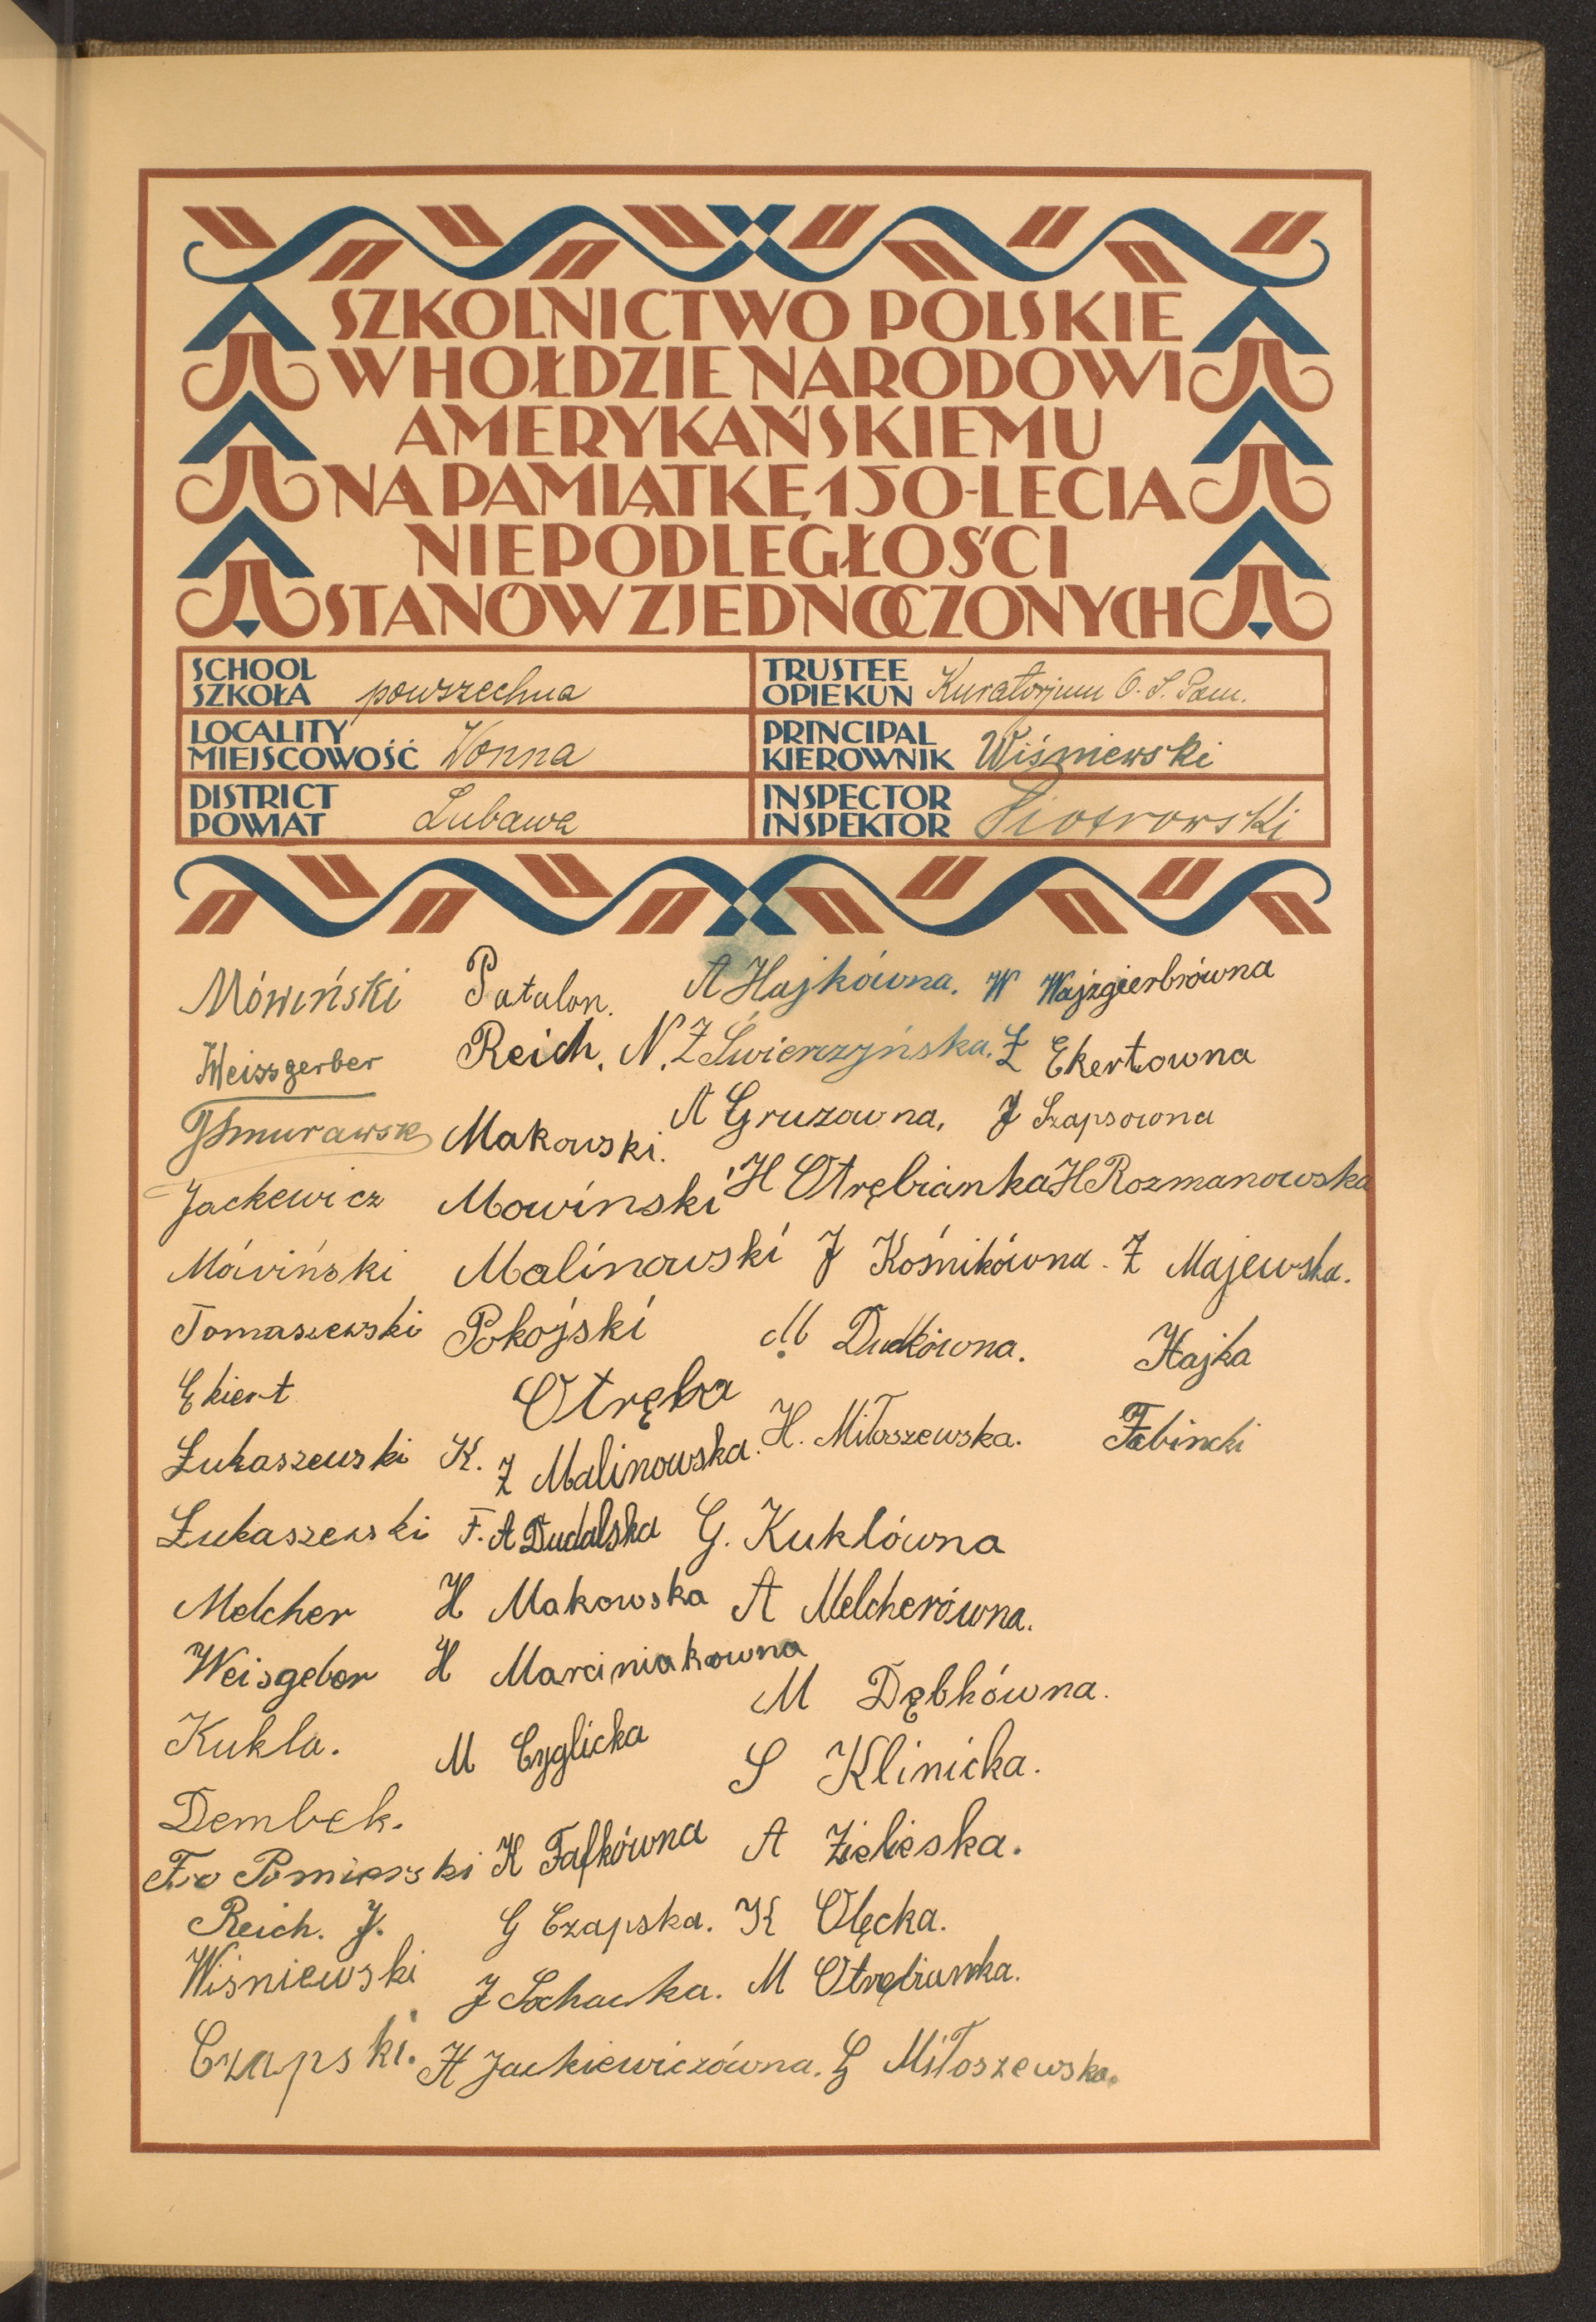 SZKOLNICTWO POLSKIE
W HOŁDZIE NARODOWI
AMERYKAŃSKIEMU
NA PAMIĄTKĘ 150-LECIA
NIEPODLEGŁOŚCI
STANÓW ZJEDNOCZONYCH
SCHOOL
SZKOŁA powszechna
TRUSTEE
OPIEKUN Kuratorjum O. S. Pom.
LOCALITY
MIEJSCOWOŚĆ Wonna
PRINCIPAL
KIEROWNIK Wiśniewski
DISTRICT
POWIAT Lubawa
INSPECTOR
INSPEKTOR Piotrowski
Mówiński Patalon. A Hajkówna. W Wajzgierbrówna
Weissgerber Reich, N. Z Świerczyńska. Z Ekertowna
Makowski. A Gruzowna, J Szapsowna
Jackewicz Mowinski H Otrębianka H Rozmanowska
Mówiński Malinowski J Kośnikówna. Z Majewska.
Tomaszewski Pokojski M Dudkówna. Hajka
Ekiert Otręba
Łukaszewski K. Z Malinowska. H. Miłoszewska.
Łukaszewski F. A Dudalska G. Kuklówna
Melcher H Makowska A Melcherówna.
Weisgebor H Marciniakowna
M Dębkówna.
Kukla. M Cyglicka S Klinicka.
Dembek.
K Fafkówna A Zieleska.
Reich. J. G Czapska. K Olęcka.
Wiśniewski J Sochacka. M Otrębianka.
Czapski. H Jackiewiczówna. G Miłoszewska.